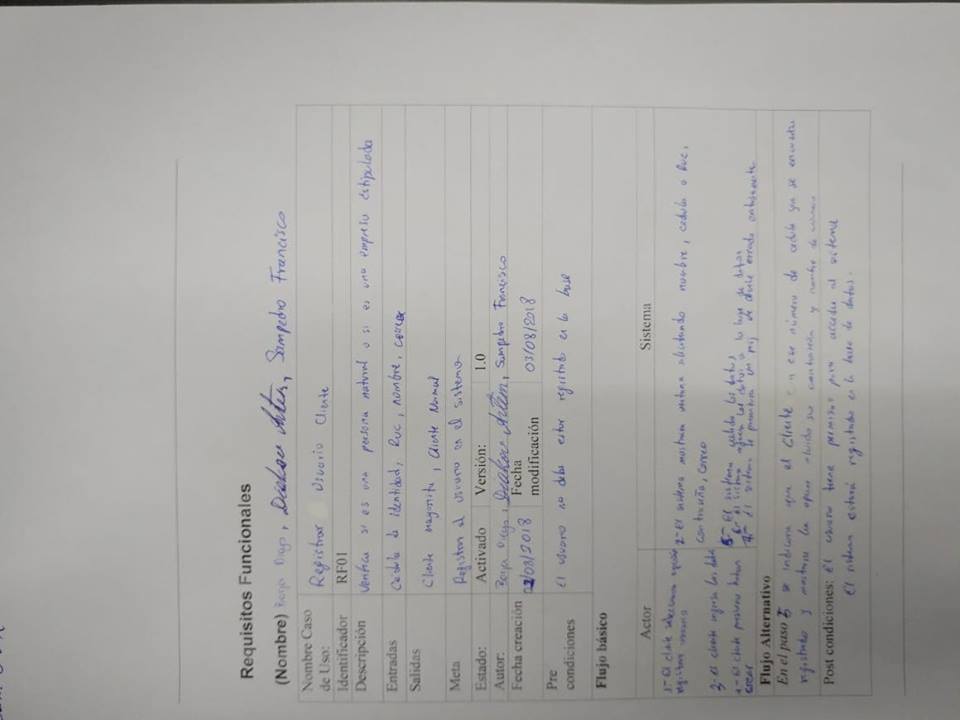 Requisitos Funcionales
(Nombre) Borja Diego, Diakov Artem, Sampedro Francisco
Nombre Caso de Uso: Registrar Usuario Cliente
Identificador RF01
Descripción Verifica si es una persona natural o si es una empresa estipulada
Entradas Cedula de Identidad, Ruc, nombre, correo
Salidas Cliente mayorita, Cliente Normal
Meta Registrar al usuario en el sistema
Estado: Activado Versión: 1.0
Autor: Borja Diego, Diakov Artem, Sampedro Francisco
Fecha creación 02/08/2018 Fecha modificación 03/08/2018
Pre condiciones El usuario no debe estar registrado en la base
Flujo básico
Actor Sistema
1- El cliente selecciona opción
registrar usuario
2- El sistema mostrara ventana solicitando nombre, cedula o Ruc,
contraseña, correo
3- El cliente ingresa los datos
4- El cliente presiona boton
crear
5- El sistema valida los datos
6- El sistema agrega los datos a la base de datos
7- el sistema le mostrara un msj de cliente creado exitosamente
Flujo Alternativo
En el paso 5 se indicara que el Cliente con ese número de cedula ya se encuentra
registrado y mostrara la opcion olvido su contraseña y nombre de usuario
Post condiciones: El usuario tiene permisos para acceder al sistema
El sistema estará registrado en la base de datos.